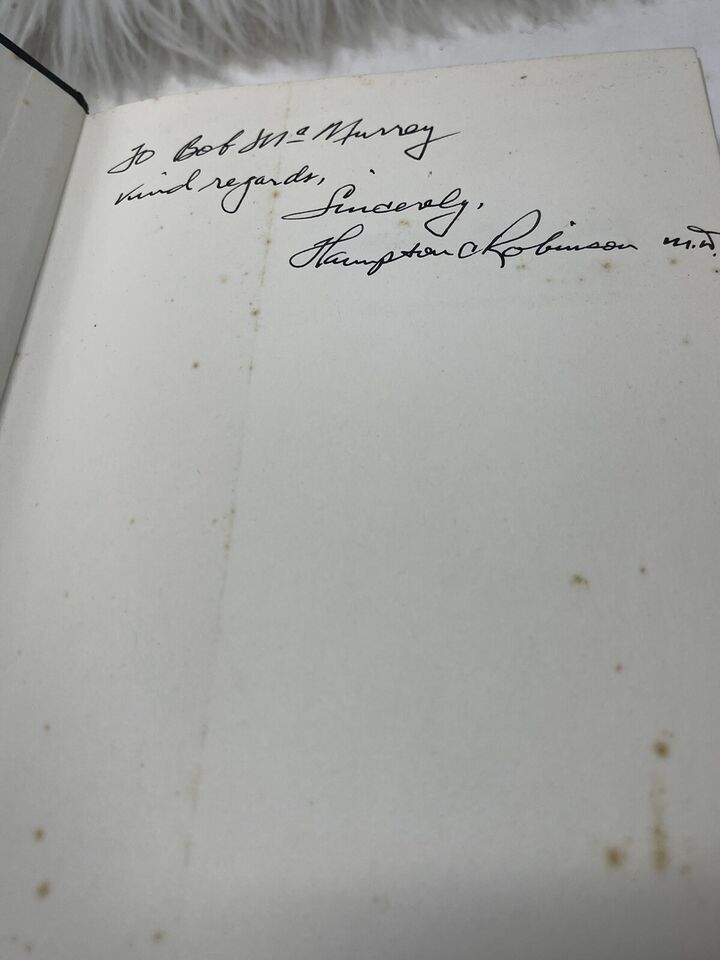 To Bob McMurrey
Kind regards,
Sincerely,
Hampton C Robinson M.D.